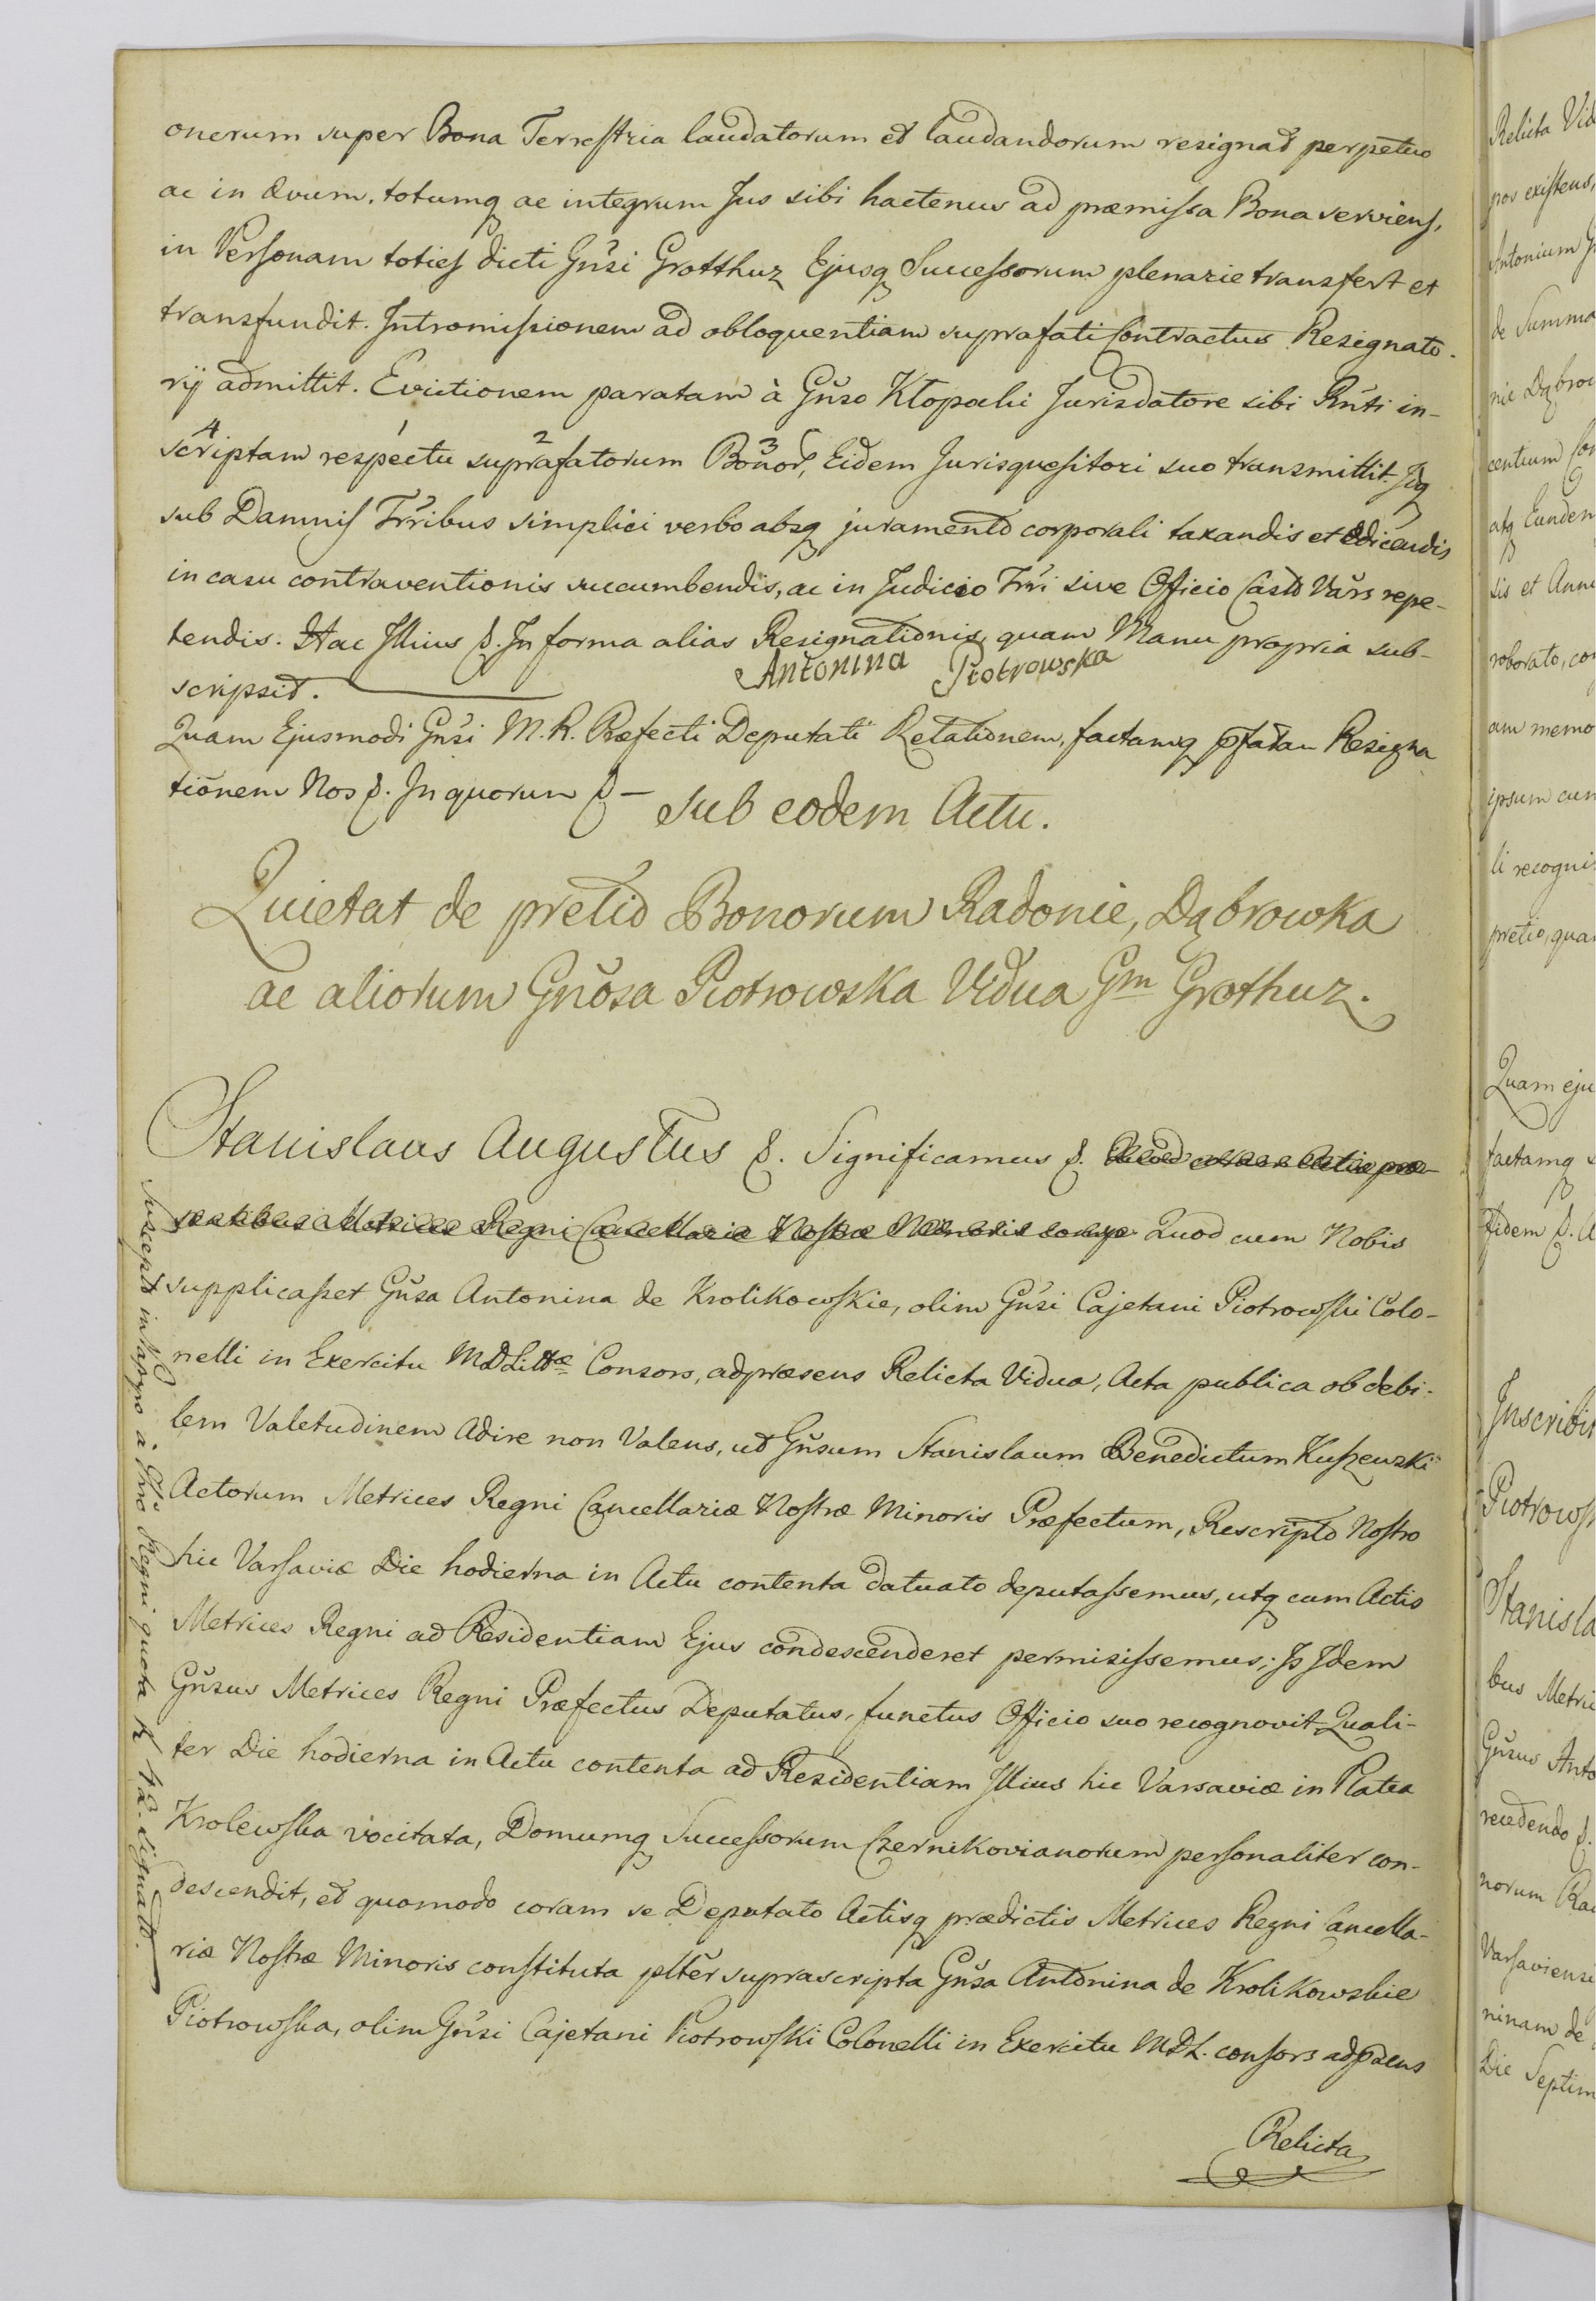 onerum super Bona Terrestria laudatorum et laudandorum resignat perpetuo
ac in ævum, totumq ac integrum Jus sibi hactenus ad præmissa Bona serviens,
in Personam toties dicti Gnsi Grotthuz Ejusq Successorum plenarie transfert et
transfundit. Intromissionem ad obloquentiam suprafati Contractus Resignato-
rij admittit. Evictionem paratam à Gnso Kłopocki Jurisdatore sibi Rnti in-
4 1 2 3
scriptam respectu suprafatorum Bonor, Eidem Jurisquesitori suo transmittit. Idq
sub Damnis Trribus simplici verbo absq juramento corporali taxandis et edicendis
in casu contraventionis succumbendis, ac in Judicio Trri sive Officio Casto Vars repe-
tendis. Hac Illius &. In forma alias Resignationis, quam Manu propria sub-
scripsit. Antonina Piotrowska
Quam Ejusmodi Gnsi M. R. Præfecti Deputati Relationem, factamq pfatam Resigna
tionem Nos &. In quorum & –
Sub eodem Actu.
Quietat de pretio Bonorum Radonie, Dąbrowka
ac aliorum Gnosa Piotrowska Vidua Gm Grothuz.
Stanislaus Augustus &. Significamus &. Quod coram Actis præ-
sentibus Metrices Regni Cancellariæ Nostræ Minoris Quod cum Nobis
supplicasset Gnsa Antonina de Krolikowskie, olim Gnsi Cajetani Piotrowski Colo-
nelli in Exercitu MDLittæ Consors, adpræsens Relicta Vidua, Acta publica ob debi-
lem Valetudinem adire non Valens, ut Gnsum Stanislaum Benedictum Kuszewski
Actorum Metrices Regni Cancellariæ Nostræ Minoris Præfectum, Rescripto Nostro
hic Varsaviæ Die hodierna in Actu contenta datuato deputassemus, utq cum Actis
Metrices Regni ad Residentiam Ejus condescenderet permisissemus; Is Idem
Gnsus Metrices Regni Præfectus Deputatus, functus Officio suo recognovit Quali-
ter Die hodierna in Actu contenta ad Residentiam Illius hic Varsaviæ in Platea
Krolewska vocitata, Domumq Successorum Czernikovianorum personaliter con-
descendit, et quomodo coram se Deputato Actisq prædictis Metrices Regni Cancella-
riæ Nostræ Minoris constituta plter suprascripta Gnsa Antonina de Krolikowskie
Piotrowska, olim Gnsi Cajetani Piotrowski Colonelli in Exercitu MDL. consors adpdens
Relicta
Suscept in à Regni quota signatt.
Relicta Vid
existens,
Antonium G
de Summa
nie Dąbrow
centium Con
atq Eundem
sis et Ann
roborato, con
am memo
ipsum cum
li recogni
pretio, quam
Quam eju
factamq s
fidem &. A
Inscribit
Piotrows
Stanisla
bus Metric
Gnsus Anto
recedendo &.
norum Ra
Varsaviensi
ninam de
Die Septim